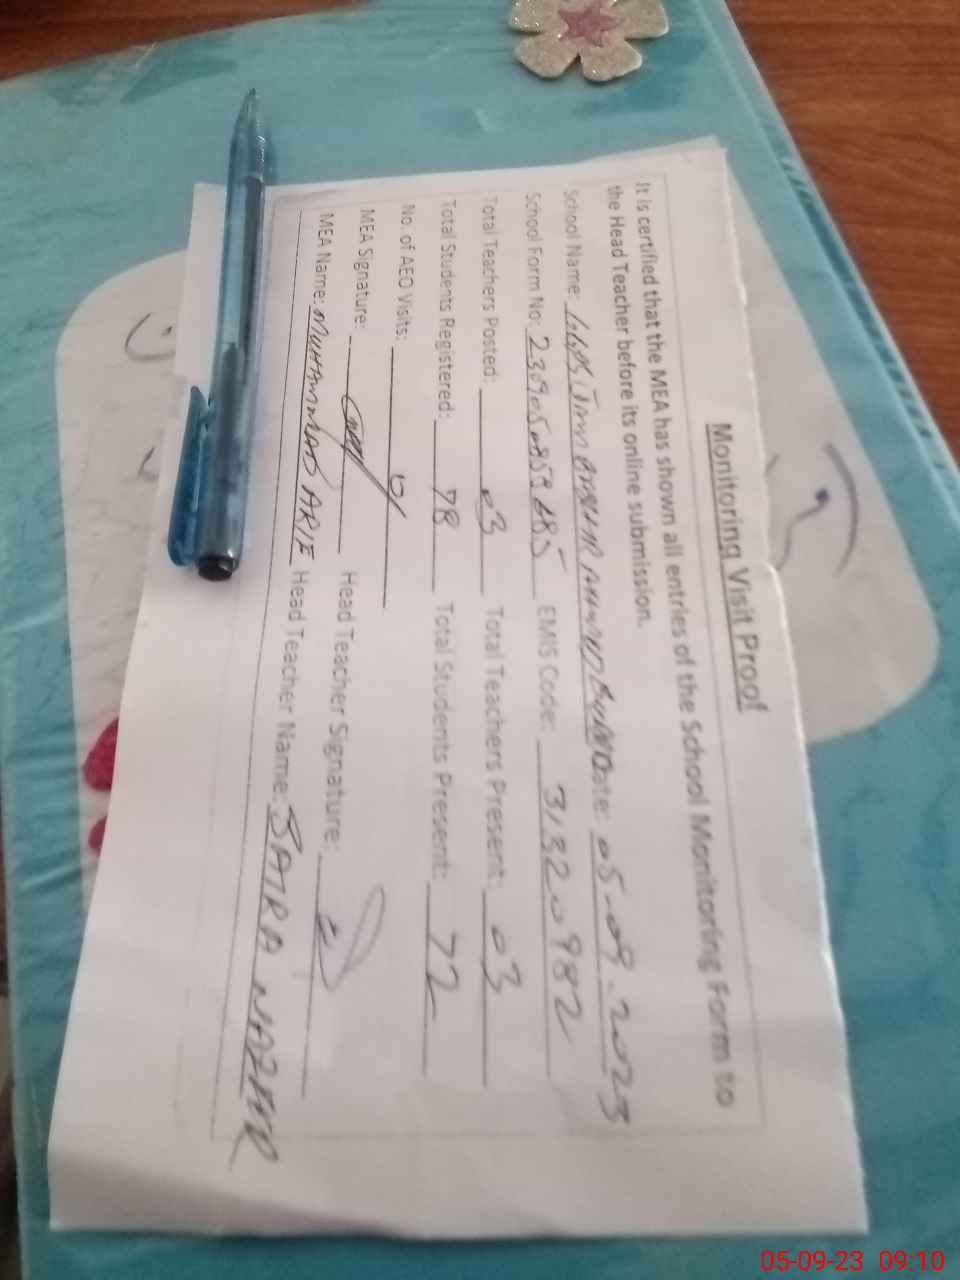 Monitoring Visit Proof
It is certified that the MEA has shown all entries of the School Monitoring Form to
the Head Teacher before its online submission.
School Name: Date: 05-09-2023
School Form No: EMIS Code: 31320982
Total Teachers Posted: 03 Total Teachers Present: 03
Total Students Registered: 78 Total Students Present: 72
No. of AEO Visits: 01
MEA Signature: Head Teacher Signature:
MEA Name: MUHAMMAD ARIF Head Teacher Name: SAIRA NAZIR
05-09-23 09:10